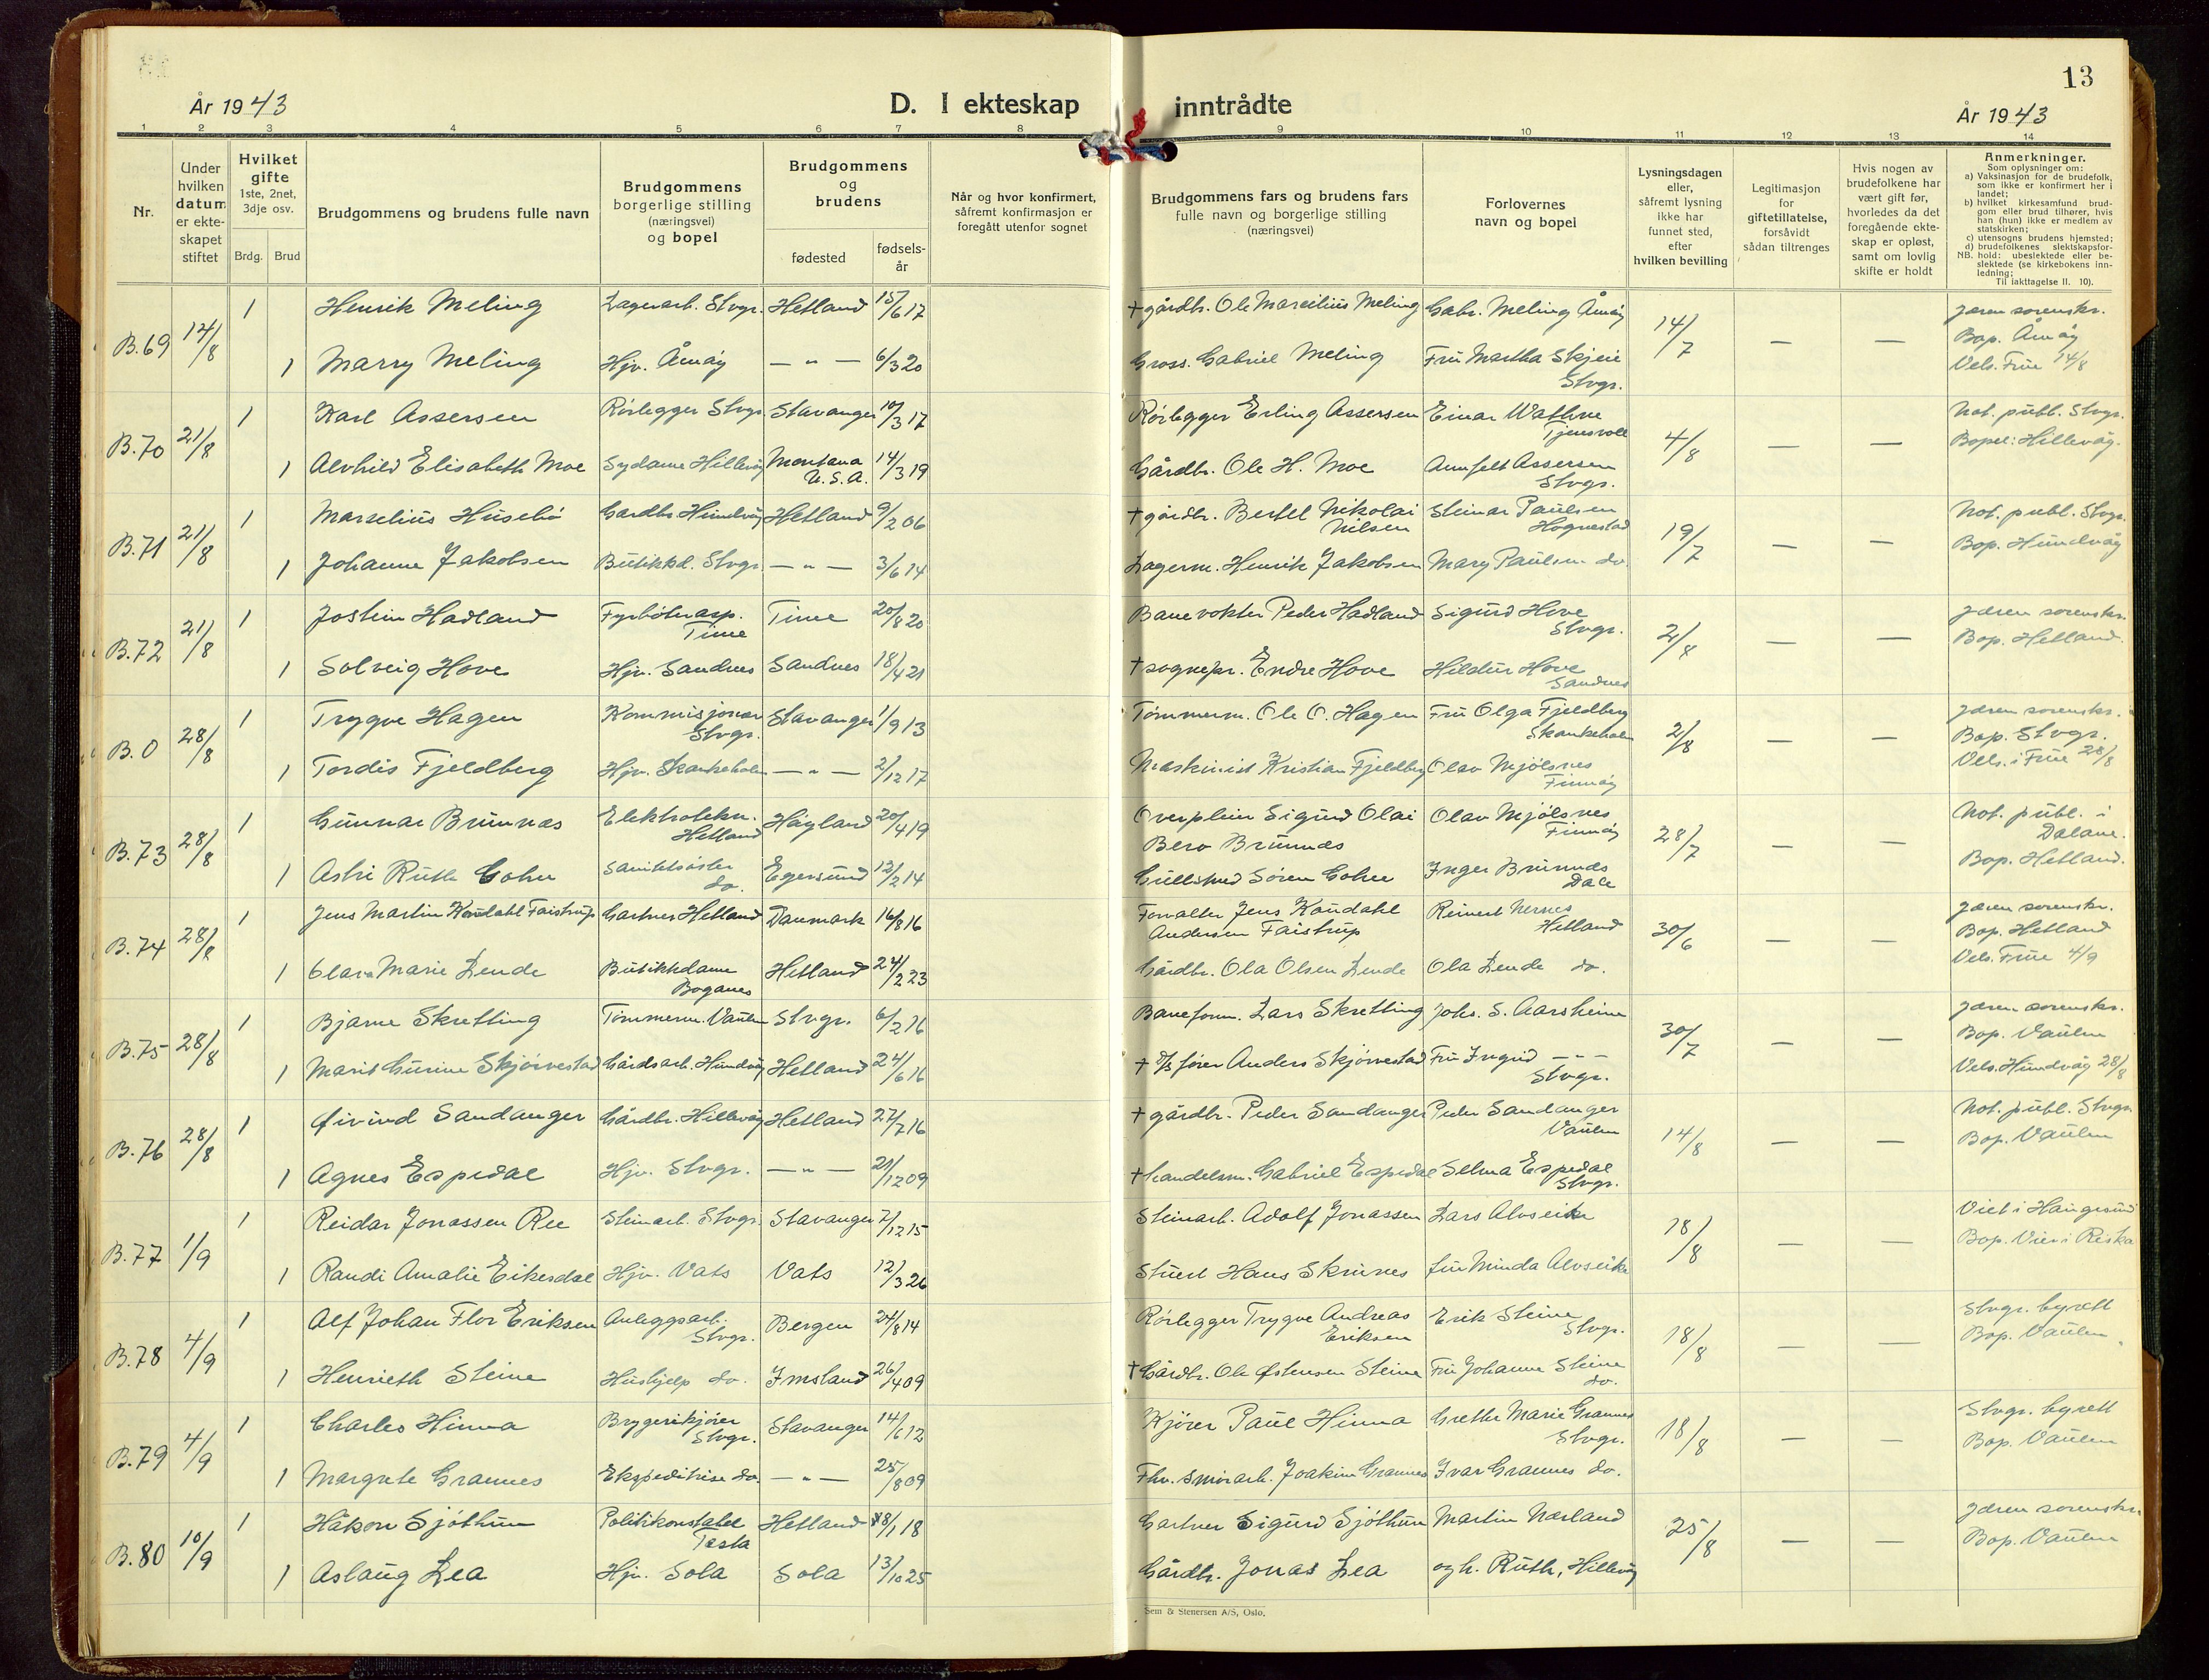 13
År 1943
D. I ekteskap inntrådte
År 1943
1 2 3 4 5 6 7 8 9 10 11 12 13 14
Nr.
Under hvilken datum er ekteskapet stiftet
Hvilket gifte 1ste, 2net, 3dje osv.
Brdg. Brud
Brudgommens og brudens fulle navn
Brudgommens borgerlige stilling (næringsvei) og bopel
Brudgommens og brudens
fødested
fødselsår
Når og hvor konfirmert, såfremt konfirmasjon er foregått utenfor sognet
Brudgommens fars og brudens fars fulle navn og borgerlige stilling (næringsvei)
Forlovernes navn og bopel
Lysningsdagen eller, såfremt lysning ikke har funnet sted, efter hvilken bevilling
Legitimasjon for giftetillatelse, forsåvidt sådan tiltrenges
Hvis nogen av brudefolkene har vært gift før, hvorledes da det foregående ekteskap er opløst, samt om lovlig skifte er holdt
Anmerkninger.
Som oplysninger om:
a) Vaksinasjon for de brudefolk, som ikke er konfirmert her i landet;
b) hvilket kirkesamfund brudgom eller brud tilhører, hvis han (hun) ikke er medlem av statskirken;
c) utensogns brudens hjemsted;
d) brudefolkenes slektskapsforhold: ubeslektede eller beslektede (se kirkebokens innledning;
NB. Til iakttagelse II. 10).
B.69 14/8 1 Henrik Meling Lagerarb. Stvgr. Hetland 15/6 17 † gårdbr. Ole Marcilius Meling Gabr. Meling Åmøy 14/7 — — Jæren sorenskr. Bop. Åmøy Vels. Frue 14/8
1 Marry Meling Hjv. Åmøy — " — 6/3 20 Gross. Gabriel Meling Fru Martha Skjeie Stvgr.
B.70 21/8 1 Karl Assersen Rørlegger Stvgr. Stavanger 10/3 17 Rørlegger Erling Assersen Einar Wathne Tjensvoll 4/8 — — Not. publ. Stvgr. Bopel: Hillevåg.
1 Alvhild Elisabeth Moe Sydame Hillevåg Montana U.S.A. 14/3 19 Gårdbr. Ole H. Moe Assersen Stvgr.
B.71 21/8 1 Marselius Husebø Gardbr. Hundvåg Hetland 9/2 06 † gårdbr. Bertel Nikolai Nilsen Steinar Paulsen Hognestad 19/7 — — Not. publ. Stvgr. Bop. Hundvåg
1 Johanne Jakobsen Butikkd. Stvgr. — " — 3/6 14 Lagerm. Henrik Jakobsen Mary Paulsen do.
B.72 21/8 1 Jostein Hadland Fyrbøterasp. Time Time 20/8 20 Banevokter Peder Hadland Sigurd Hove Stvgr. 2/8 — — Jæren sorenskr. Bop. Hetland.
1 Solveig Hove Hjv. Sandnes Sandnes 18/4 21 † sognepr. Endre Hove Hildur Hove Sandnes
B.0 28/8 1 Trygve Hagen Kommisjonær Stvgr. Stavanger 1/9 13 Tømmerm. Ole O. Hagen Fru Olga Fjeldberg Skankeholm 2/8 — — Jæren sorenskr. Bop. Stvgr. Vels. i Frue 28/8
1 Tordis Fjeldberg Hjv. Skankeholm — " — 2/12 17 Maskinist Kristian Fjeldberg Olav Mjølsnes Finnøy
B.73 28/8 1 Gunnar Brunnæs Elektrotekn. Hetland Høyland 20/4 19 Overplein Sigurd Olai Bero Brunnæs Olav Mjølsnes Finnøy 28/7 — — Not. publ. i Dalane. Bop. Hetland.
1 Astri Ruth Cohn do. Egersund 12/2 14 Gullsmed Søren Inger Brunnæs Dale
B.74 28/8 1 Jens Martin Kondahl Faistrup Gartner Hetland Danmark 16/8 16 Forvalter Jens Kondahl Andersen Faistrup Reinert Nernes Hetland 30/6 — — Jæren sorenskr. Bop. Hetland Vels. Frue 4/9
1 Clara Marie Lende Butikkdame Boganes Hetland 24/2 23 Gårdbr. Ola Olsen Lende Ola Lende do.
B.75 28/8 1 Bjarne Skretting Tømmerm. Vaulen Stvgr. 6/2 16 Baneform. Lars Skretting Johs. S. Aarsheim 30/7 — — Jæren sorenskr. Bop. Vaulen Vels. Hundvåg 28/8
1 Marit Gurine Skjørvestad Gårdsarb. Hundvåg Hetland 24/6 16 † D/S fører Anders Skjørvestad Fru Ingrid — " — Stvgr.
B.76 28/8 1 Øivind Sandanger Gårdbr. Hillevåg Hetland 27/7 16 † gårdbr. Peder Sandanger Peder Sandanger Vaulen 14/8 — — Not. publ. Stvgr. Bop. Vaulen
1 Agnes Espedal Hjv. Stvgr. — " — 21/12 09 † handelsm. Gabriel Espedal Selma Espedal Stvgr.
B.77 1/9 1 Reidar Jonassen Ree Steinarb. Stvgr. Stavanger 7/12 15 Steinarb. Adolf Jonassen Lars Alvseike 18/8 — — Viet i Haugesund Bop. Vier i Riska
1 Randi Amalie Eikesdal Hjv. Vats Vats 12/3 26 Stuert Hans Skrunes fru Minda Alvseike
B.78 4/9 1 Alf Johan Flor Eriksen Anleggsarb. Stvgr. Bergen 24/8 14 Rørlegger Trygve Andreas Eriksen Erik Steine Stvgr. 18/8 — — Stvgr. byrett Bop. Vaulen
1 Henrieth Steine Hushjelp do. Imsland 26/4 09 † Gårdbr. Ole Østensen Steine Fru Johanne Steine do.
B.79 4/9 1 Charles Hinna Bryggerikjører Stvgr. Stavanger 14/6 12 Kjører Paul Hinna Grethe Marie Grannes Stvgr. 18/8 — — Stvgr. byrett Bop. Vaulen
1 Margrete Grannes Ekspeditrise do. — " — 25/8 09 Fhv. smørarb. Joakim Grannes Ivar Grannes do.
B.80 10/9 1 Håkon Sjøthun Politikonstabel Tasta Hetland 18/1 18 Gartner Sigurd Sjøthun Martin Nærland 25/8 — — Jæren sorenskr. Bop. Vaulen
1 Aslaug Lea Hjv. Sola Sola 13/10 25 Gårdbr. Jonas Lea og h. Ruth, Hillevåg
Sem & Stenersen A/S, Oslo.